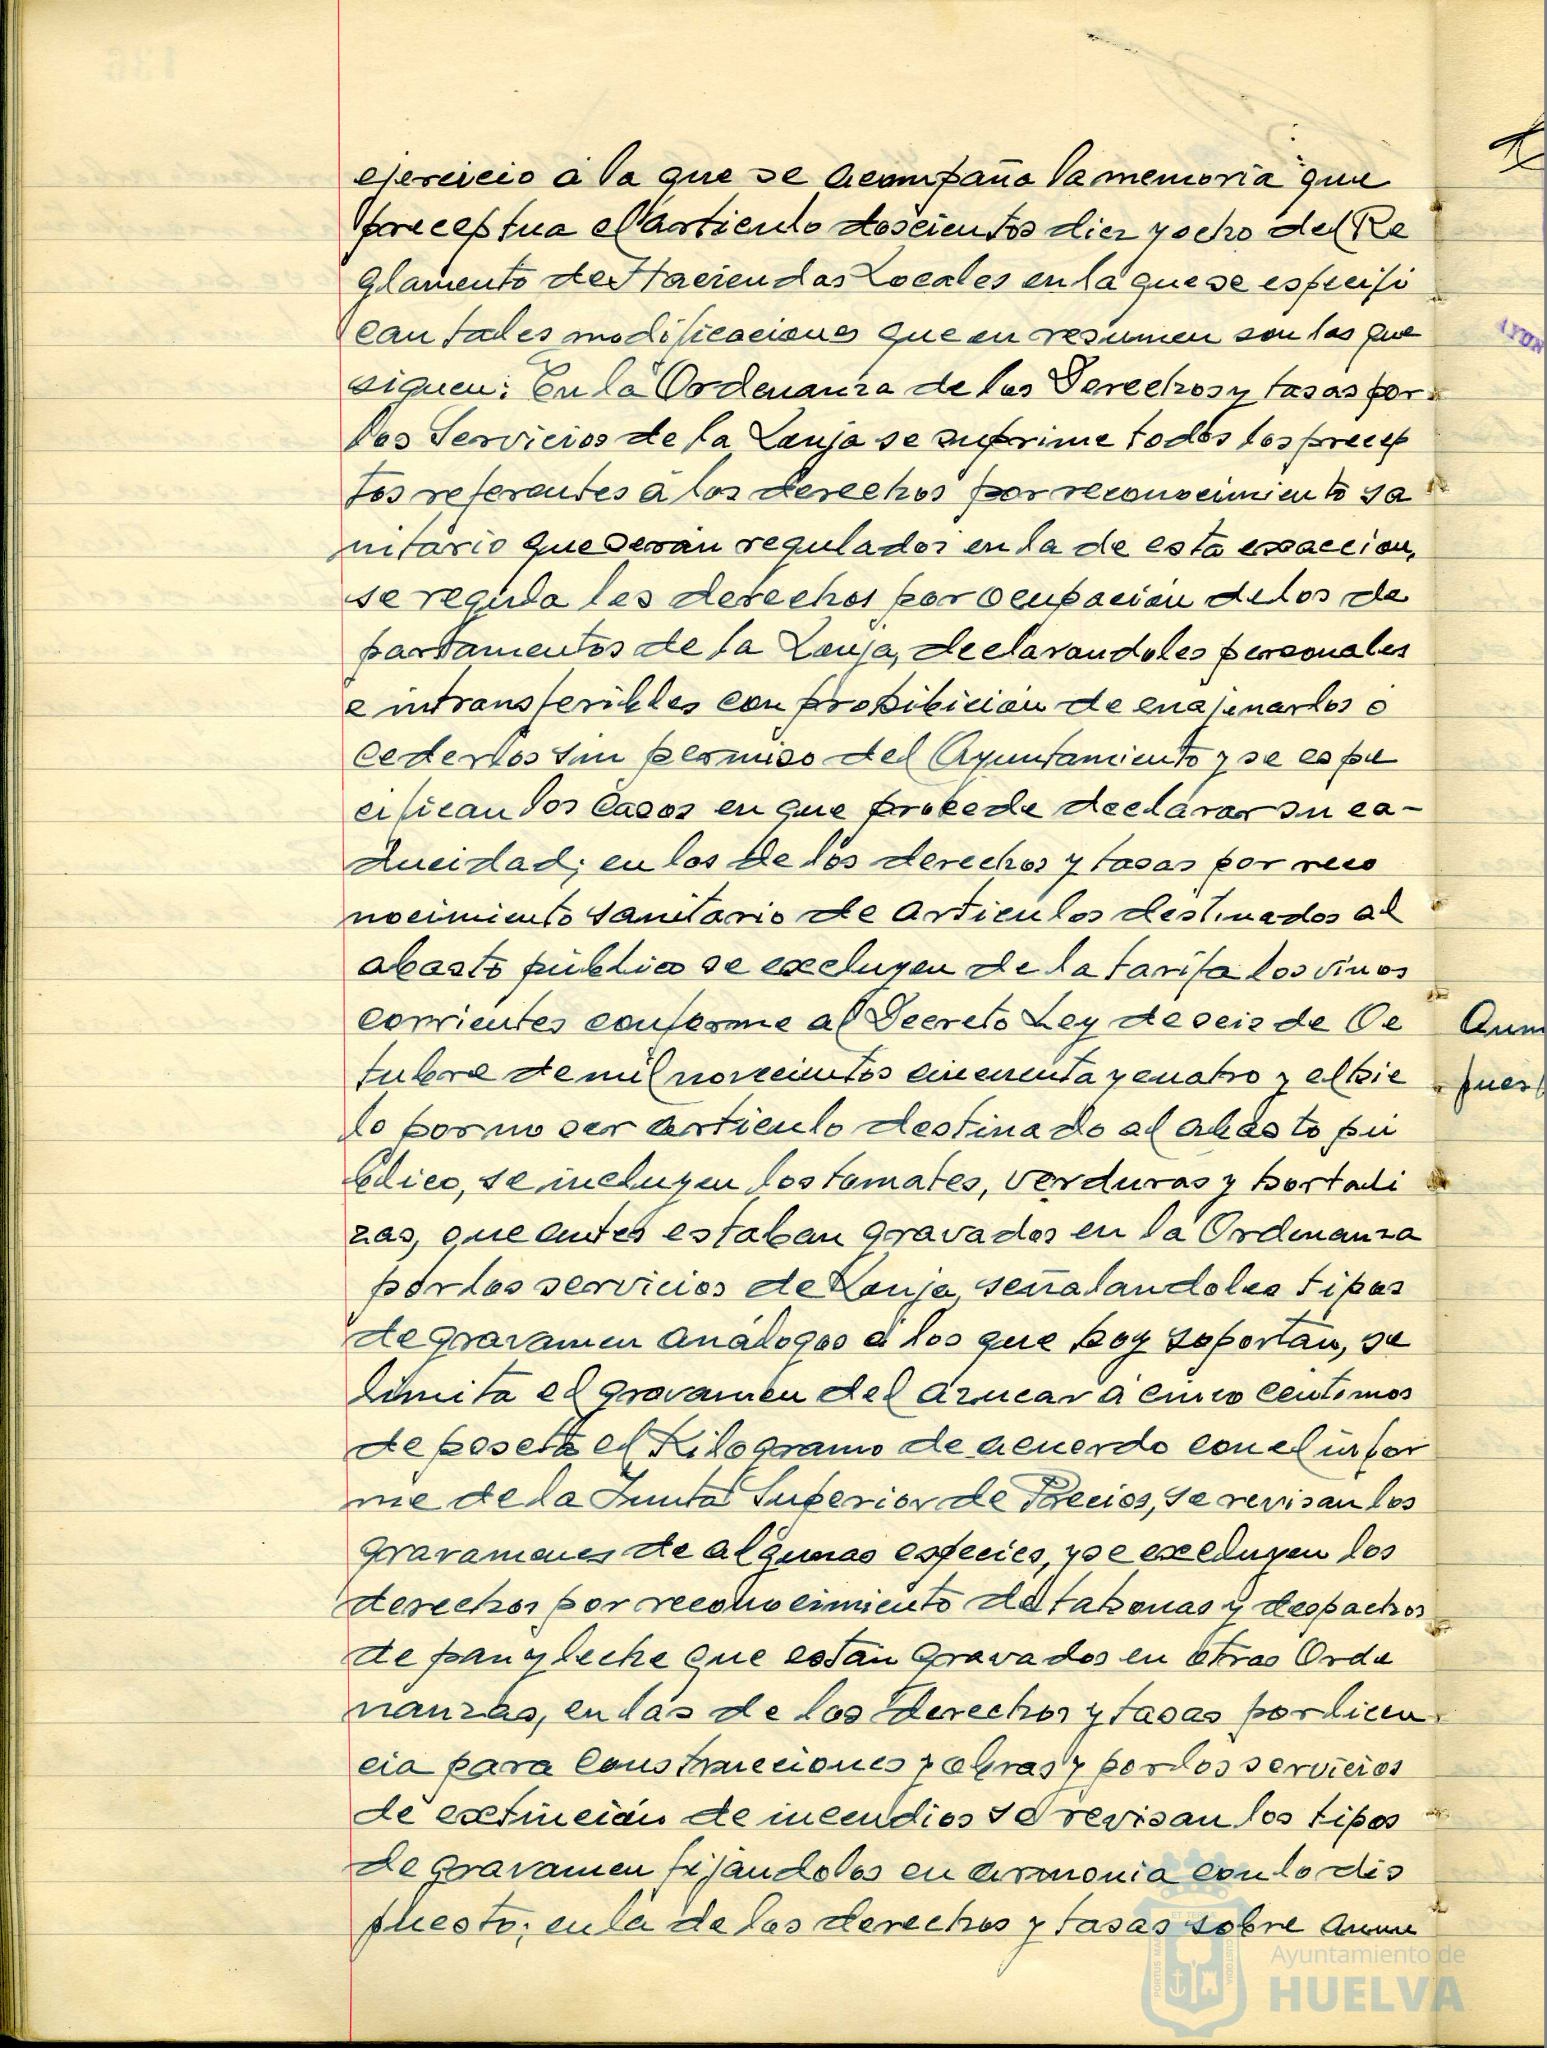 ejercicio á la que se acompaña la memoria que
preceptua el artículo doscientos diez y ocho del Re
glamento de Haciendas Locales en la que se especifi
can tales modificaciones que en resumen son las que
siguen: En la Ordenanza de los Derechos y tasas por
los Servicios de la Lonja se suprime todos los precep
tos referentes á los derechos por reconocimiento sa
nitario que serán regulados en la de esta exaccion,
se regula los derechos por ocupación de los de
partamentos de la Lonja, declarandoles personales
e intransferibles con prohibición de enajenarlos ó
cederlos sin permiso del Ayuntamiento y se espe
cifican los casos en que procede declarar su ca-
ducidad; en los de los derechos y tasas por reco
nocimiento sanitario de artículos destinados al
abasto público se excluyen de la tarifa los vinos
corrientes conforme al Decreto Ley de seis de Oc
tubre de mil novecientos cincuenta y cuatro y el hie
lo por no ser artículo destinado al abasto pú
blico, se incluyen los tomates, verduras y hortali
zas, que antes estaban gravados en la Ordenanza
por los servicios de Lonja, señalandoles tipos
de gravamen análogos á los que hoy soportan, se
limita el gravamen del azucar á cinco centimos
de peseta el Kilogramo de acuerdo con el infor
me de la Junta Superior de Precios, se revisan los
gravamenes de algunas especies, y se excluyen los
derechos por reconocimiento de tahonas y despachos
de pan y leche que están gravados en otras Orde
nanzas, en las de los derechos y tasas por licen
cia para construcciones y obras y por los servicios
de extinción de incendios se revisan los tipos
de gravamen fijándolos en armonia con lo dis
puesto; en la de los derechos y tasas sobre anun
AYUN
Anun
puest
136
PORTUS MARIS ET TERRAE CUSTODIA
Ayuntamiento de
HUELVA